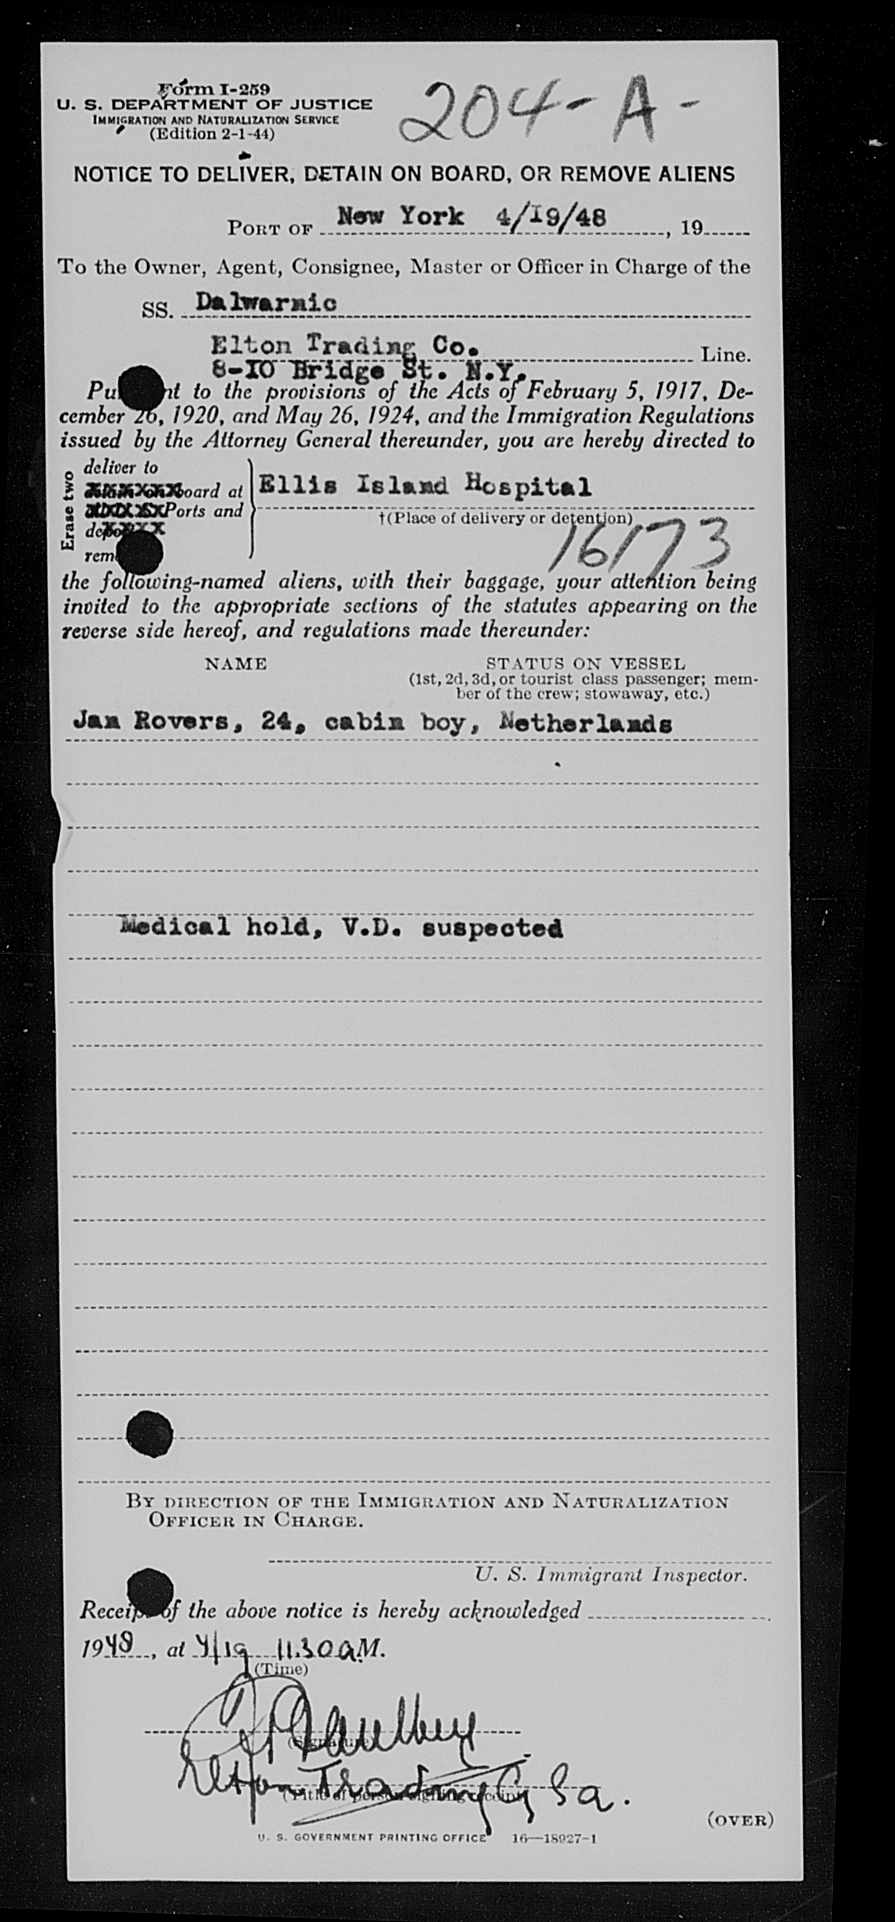 Form I-259
U. S. DEPARTMENT OF JUSTICE
IMMIGRATION AND NATURALIZATION SERVICE
(Edition 2-1-44)
204-A-
NOTICE TO DELIVER, DETAIN ON BOARD, OR REMOVE ALIENS
PORT OF New York 4/19/48, 19
To the Owner, Agent, Consignee, Master or Officer in Charge of the
SS. Dalwarnic
Elton Trading Co. Line.
8-10 Bridge St. N.Y.
to the provisions of the Acts of February 5, 1917, De-
cember 26, 1920, and May 26, 1924, and the Immigration Regulations
issued by the Attorney General thereunder, you are hereby directed to
Erase two
deliver to
board at
Ports and
Ellis Island Hospital
†(Place of delivery or detention)
16173
the following-named aliens, with their baggage, your attention being
invited to the appropriate sections of the statutes appearing on the
reverse side hereof, and regulations made thereunder:
NAME STATUS ON VESSEL
(1st, 2d, 3d, or tourist class passenger; mem-
ber of the crew; stowaway, etc.)
Jan Rovers, 24, cabin boy, Netherlands
Medical hold, V.D. suspected
BY DIRECTION OF THE IMMIGRATION AND NATURALIZATION
OFFICER IN CHARGE.
U. S. Immigrant Inspector.
Receipt of the above notice is hereby acknowledged
1948, at 4/19 11.30 AM.
(Time)
(Signature)
Elton Trading Co
(Title of person signing receipt)
(OVER)
U. S. GOVERNMENT PRINTING OFFICE 16—18927-1